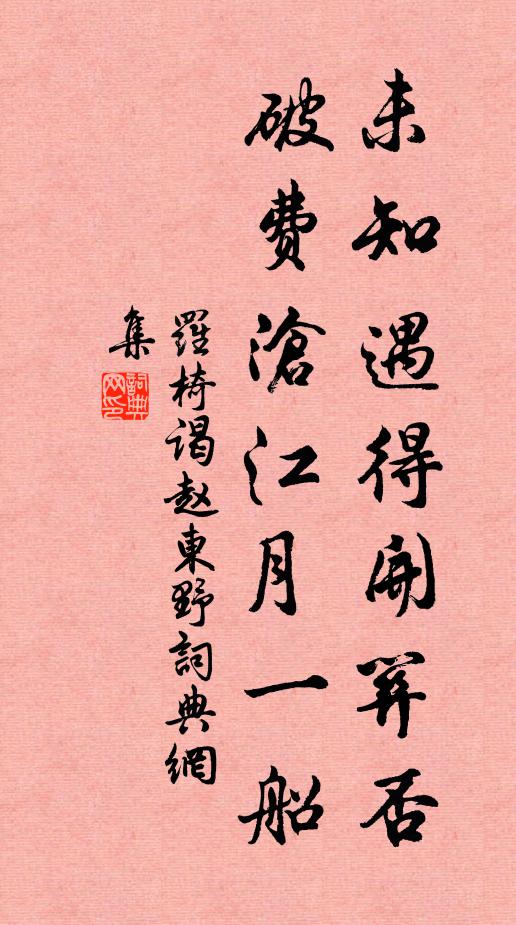 未知遇得開筭否
破費滄江月一船
羅椅謁趙東野詞典網
集
詞典網印